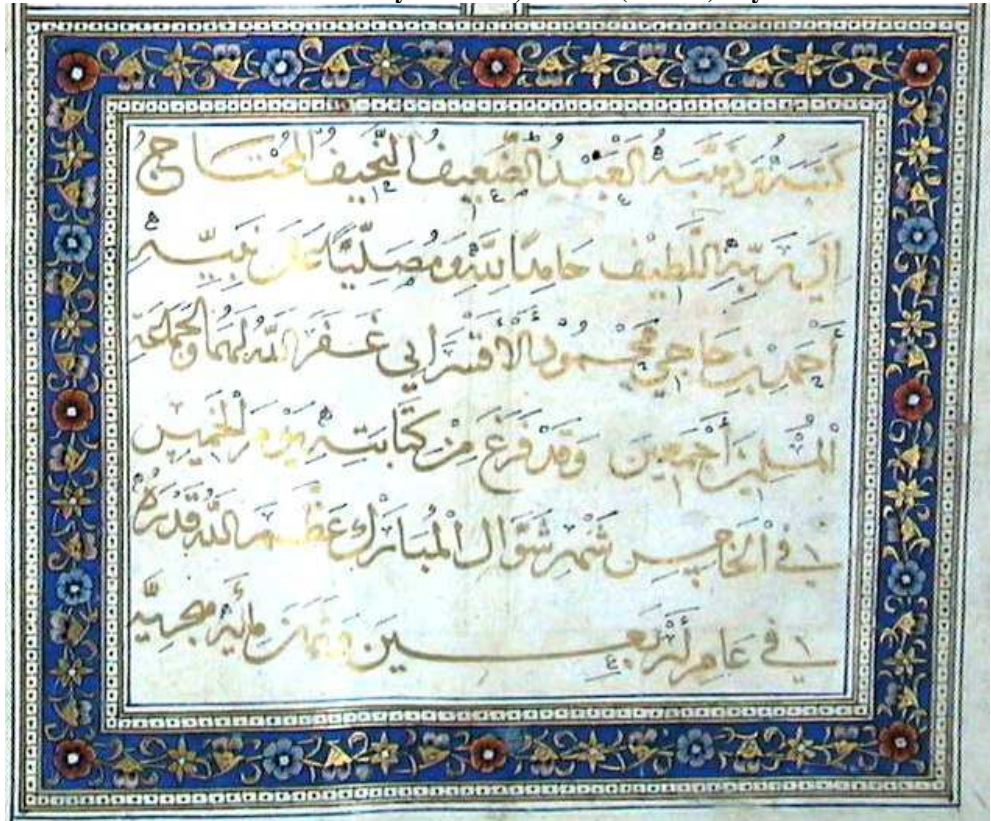 كَتَبَهُ وَذَهَّبَهُ الْعَبْدُ الضَّعِيفُ النَّحِيفُ الْمُحْتَاجُ
إِلَى رَبِّهِ اللَّطِيْفِ حَامِدًا لِلَّهِ وَمُصَلِّيًا عَلَى نَبِيِّهِ
أَحْمَدُ بْنُ حَاجِي مَحْمُودْ الْأَقْسَرَايِي غَفَرَ اللَّهُ لَهُمَا وَلِجَمَاعَةِ
الْمُسْلِمِينَ أَجْمَعِينَ وَقَدْ فَرَغَ مِنْ كِتَابَتِهِ يَوْمَ الْخَمِيسِ
فِي الْخَامِسِ شَهْرِ شَوَّالِ الْمُبَارَكِ عَظَّمَ اللَّهُ قَدْرَهُ
فِي عَامِ أَرْبَعِينَ وَثَمَانِ مِائَةٍ هِجْرِيَّة